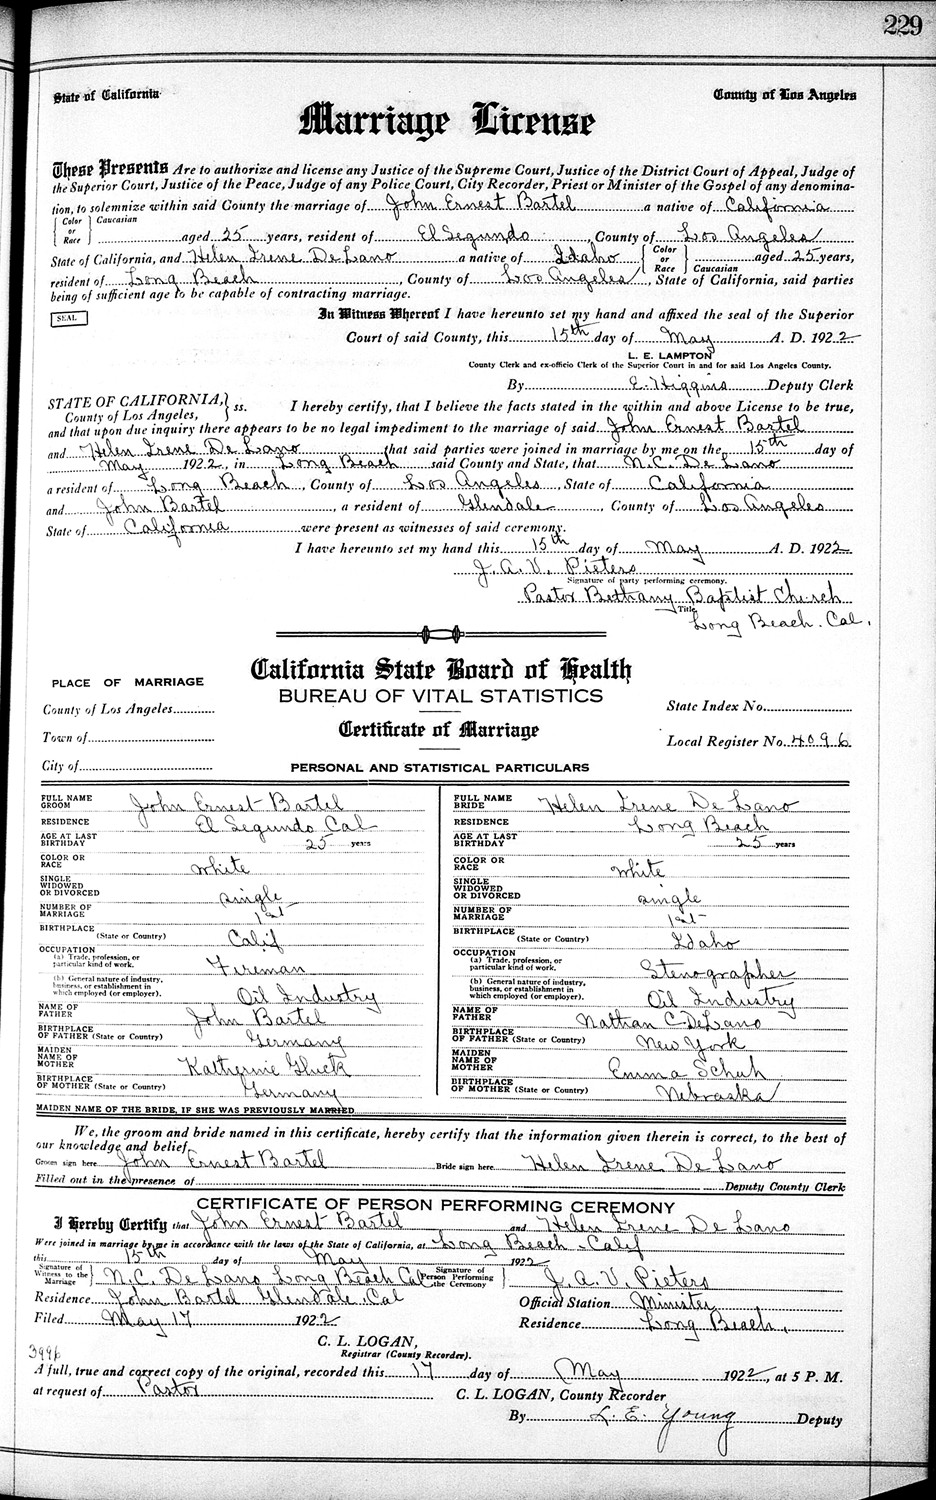 229
State of California County of Los Angeles
Marriage License
These Presents Are to authorize and license any Justice of the Supreme Court, Justice of the District Court of Appeal, Judge of
the Superior Court, Justice of the Peace, Judge of any Police Court, City Recorder, Priest or Minister of the Gospel of any denomina-
tion, to solemnize within said County the marriage of John Ernest Bartel a native of California
Color or Race Caucasian aged 25 years, resident of El Segundo, County of Los Angeles
State of California, and Helen Irene DeLano a native of Idaho Color or Race Caucasian aged 25 years,
resident of Long Beach, County of Los Angeles, State of California, said parties
being of sufficient age to be capable of contracting marriage.
SEAL
In Witness Whereof I have hereunto set my hand and affixed the seal of the Superior
Court of said County, this 15th day of May A. D. 1922
L. E. LAMPTON
County Clerk and ex-officio Clerk of the Superior Court in and for said Los Angeles County.
By E. Higgins Deputy Clerk
STATE OF CALIFORNIA,
County of Los Angeles, } ss. I hereby certify, that I believe the facts stated in the within and above License to be true,
and that upon due inquiry there appears to be no legal impediment to the marriage of said John Ernest Bartel
and Helen Irene De Lano that said parties were joined in marriage by me on the 15th day of
May 1922, in Long Beach said County and State, that N.C. De Lano
a resident of Long Beach, County of Los Angeles, State of California
and John Bartel, a resident of Glendale, County of Los Angeles
State of California were present as witnesses of said ceremony.
I have hereunto set my hand this 15th day of May A. D. 1922
J. A. V. Pieters
Signature of party performing ceremony.
Pastor Bethany Baptist Church
Title
Long Beach. Cal.
California State Board of Health
BUREAU OF VITAL STATISTICS
Certificate of Marriage
PLACE OF MARRIAGE
County of Los Angeles
Town of
City of
State Index No.
Local Register No. 4096
PERSONAL AND STATISTICAL PARTICULARS
FULL NAME GROOM John Ernest Bartel
RESIDENCE El Segundo Cal
AGE AT LAST BIRTHDAY 25 years
COLOR OR RACE white
SINGLE WIDOWED OR DIVORCED single
NUMBER OF MARRIAGE 1st
BIRTHPLACE (State or Country) Calif
OCCUPATION
(a) Trade, profession, or particular kind of work. Fireman
(b) General nature of industry, business, or establishment in which employed (or employer). Oil Industry
NAME OF FATHER John Bartel
BIRTHPLACE OF FATHER (State or Country) Germany
MAIDEN NAME OF MOTHER Katherine Gluck
BIRTHPLACE OF MOTHER (State or Country) Germany
MAIDEN NAME OF THE BRIDE, IF SHE WAS PREVIOUSLY MARRIED
FULL NAME BRIDE Helen Irene De Lano
RESIDENCE Long Beach
AGE AT LAST BIRTHDAY 25 years
COLOR OR RACE white
SINGLE WIDOWED OR DIVORCED single
NUMBER OF MARRIAGE 1st
BIRTHPLACE (State or Country) Idaho
OCCUPATION
(a) Trade, profession, or particular kind of work. Stenographer
(b) General nature of industry, business, or establishment in which employed (or employer). Oil Industry
NAME OF FATHER Nathan C. DeLano
BIRTHPLACE OF FATHER (State or Country) New York
MAIDEN NAME OF MOTHER Emma Schuh
BIRTHPLACE OF MOTHER (State or Country) Nebraska
We, the groom and bride named in this certificate, hereby certify that the information given therein is correct, to the best of
our knowledge and belief
Groom sign here John Ernest Bartel Bride sign here Helen Irene De Lano
Filled out in the presence of Deputy County Clerk
CERTIFICATE OF PERSON PERFORMING CEREMONY
I Hereby Certify that John Ernest Bartel and Helen Irene De Lano
Were joined in marriage by me in accordance with the laws of the State of California, at Long Beach Calif
this 15th day of May 1922
Signature of Witness to the Marriage } N.C. De Lano Long Beach Cal Signature of Person Performing the Ceremony } J. A. V. Pieters
Residence John Bartel Glendale Cal Official Station Minister
Filed May 17 1922 Residence Long Beach,
C. L. LOGAN,
Registrar (County Recorder).
3996
A full, true and correct copy of the original, recorded this 17 day of May 1922, at 5 P. M.
at request of Pastor C. L. LOGAN, County Recorder
By L. E. Young Deputy